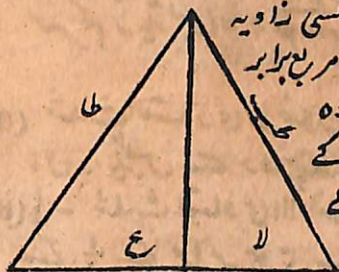 سی زاویہ
مربع برابر
ہ
کے
طا
ما
ع
لا